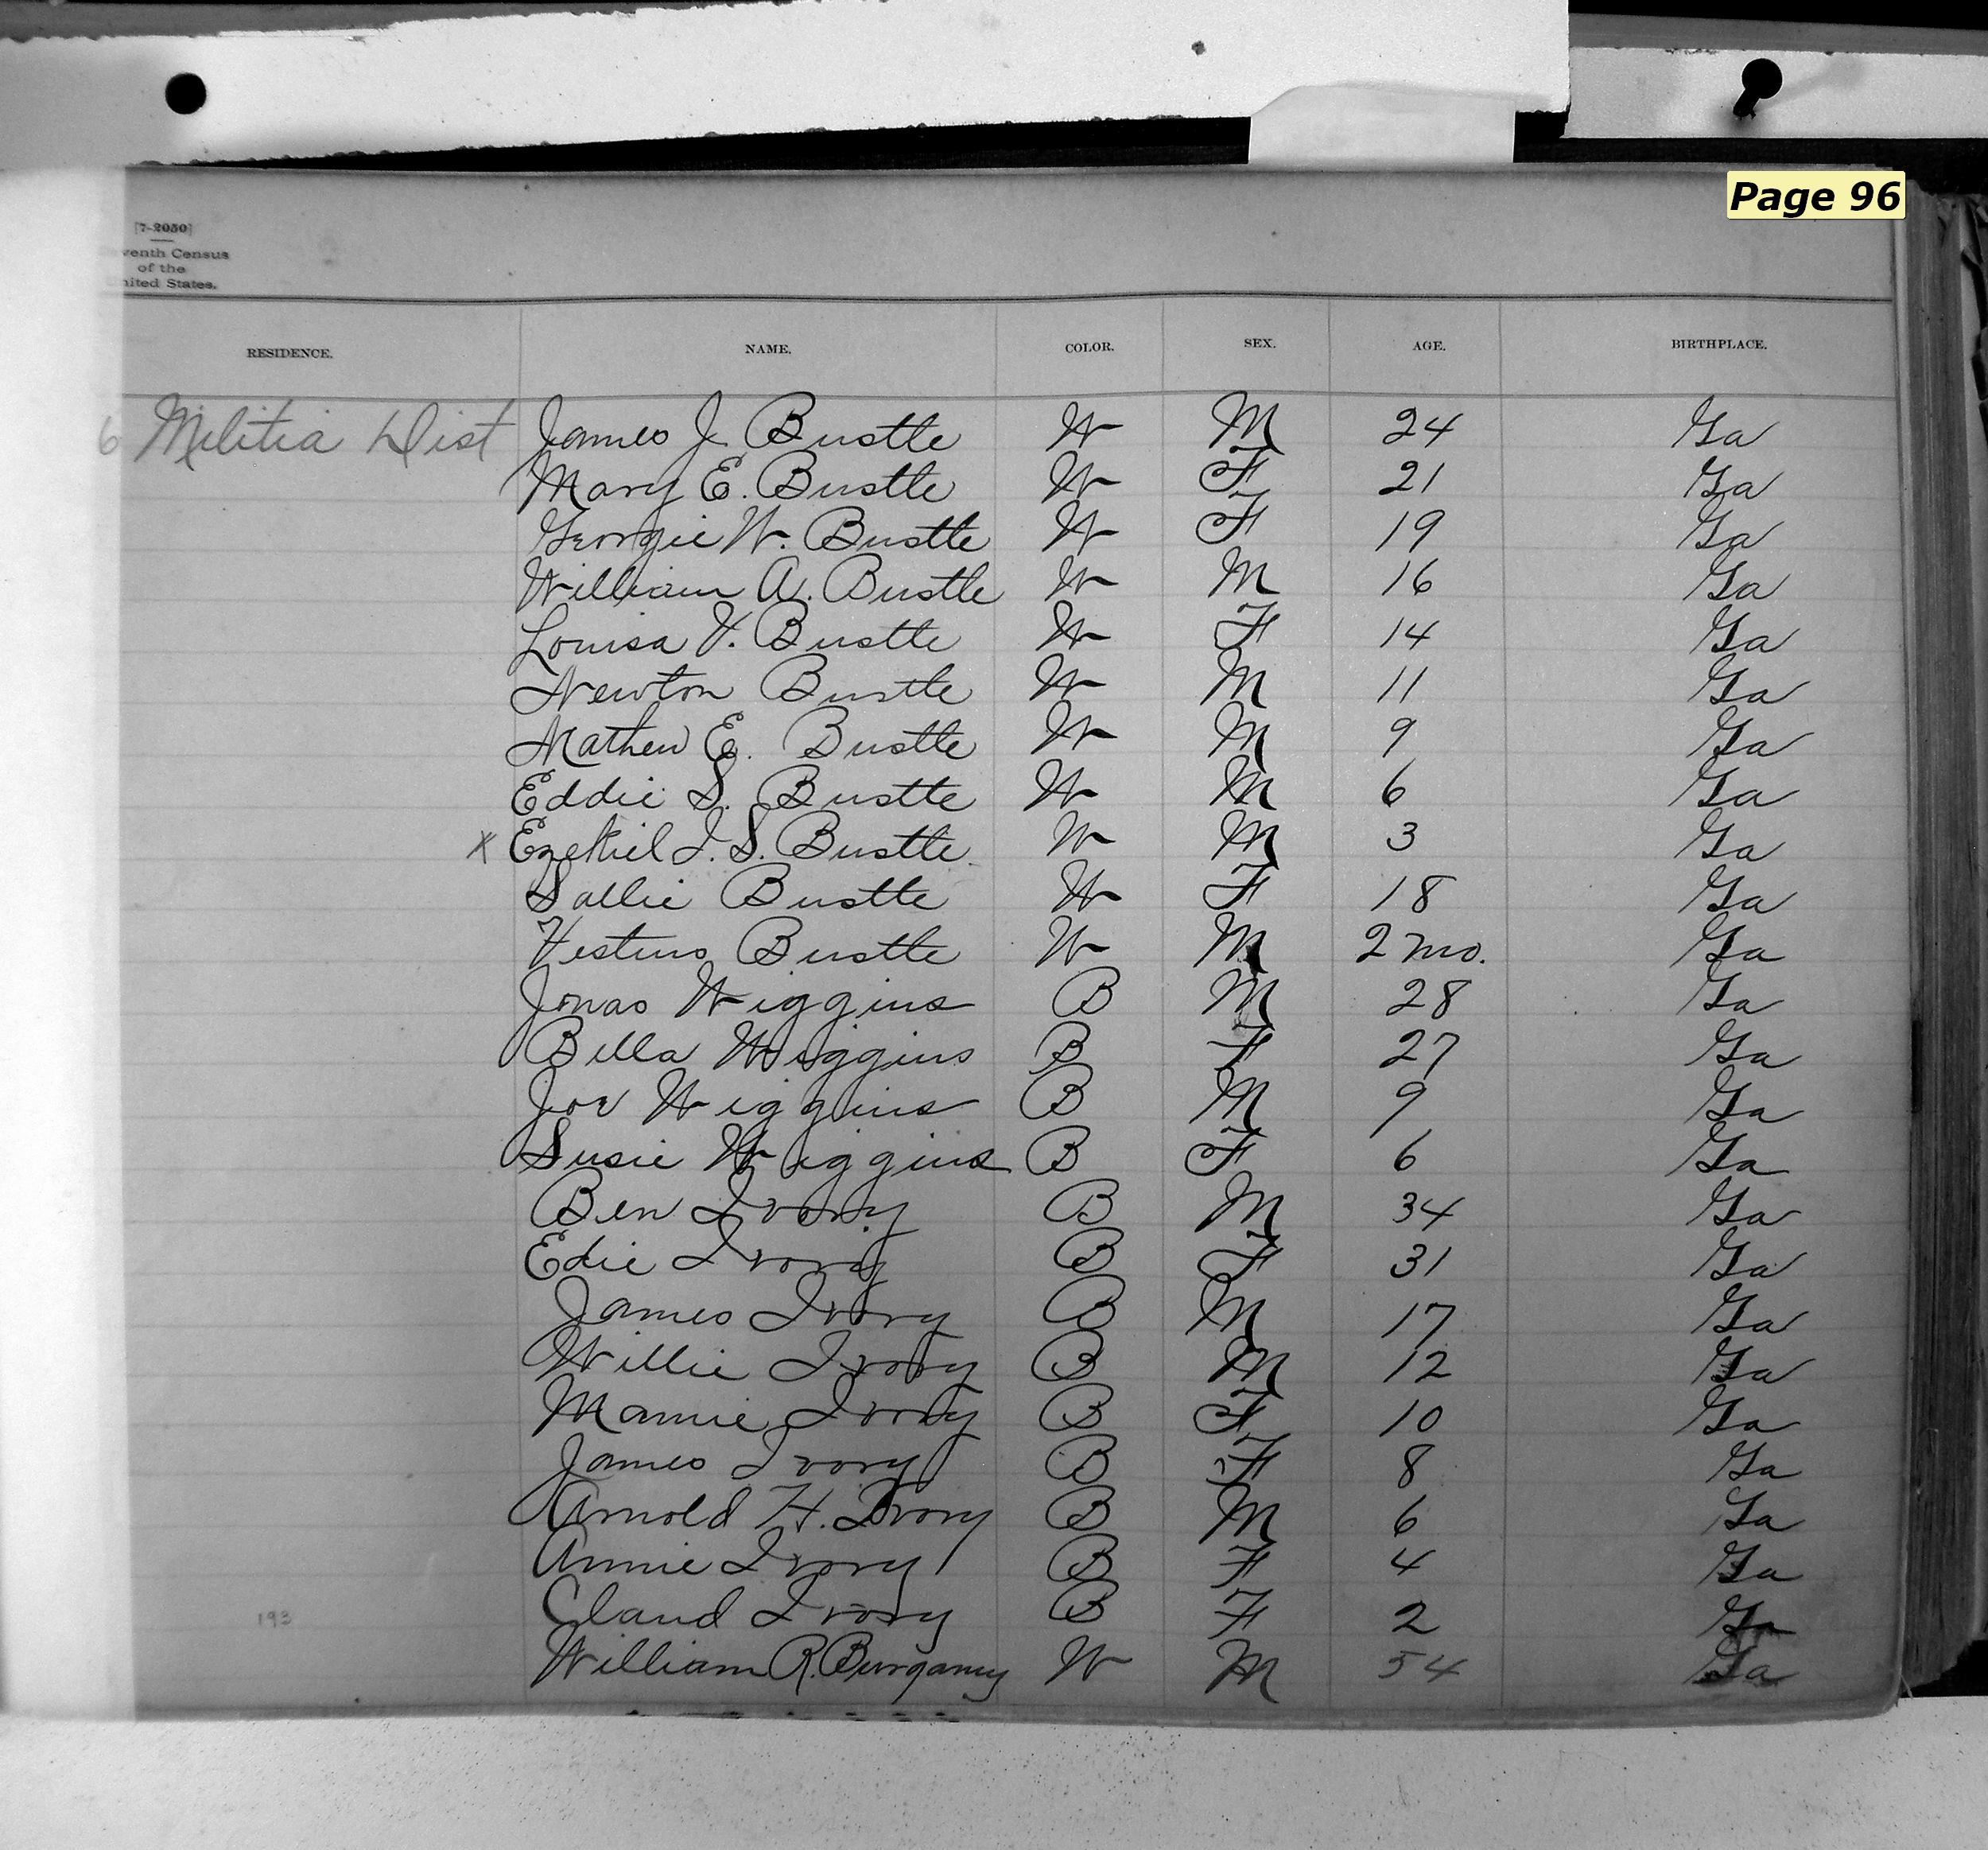 Page 96
[7-2050]
venth Census
of the
nited States.
RESIDENCE. NAME. COLOR. SEX. AGE. BIRTHPLACE.
6 Militia Dist James J. Bustle W M 24 Ga
Mary E. Bustle W F 21 Ga
Georgie W. Bustle W F 19 Ga
William A. Bustle W M 16 Ga
Louisa V. Bustle W F 14 Ga
Newton Bustle W M 11 Ga
Mathew E. Bustle W M 9 Ga
Eddie S. Bustle W M 6 Ga
x Ezekiel I. S. Bustle W M 3 Ga
Sallie Bustle W F 18 Ga
Vestus Bustle W M 2 mo. Ga
Jonas Wiggins B M 28 Ga
Bella Wiggins B F 27 Ga
Joe Wiggins B M 9 Ga
Susie Wiggins B F 6 Ga
Ben Ivory B M 34 Ga
Edie Ivory B F 31 Ga
James Ivory B M 17 Ga
Willie Ivory B M 12 Ga
Mamie Ivory B F 10 Ga
James Ivory B F 8 Ga
Arnold H. Ivory B M 6 Ga
Annie Ivory B F 4 Ga
193 Claud Ivory B F 2 Ga
William R. Burgamy W M 54 Ga